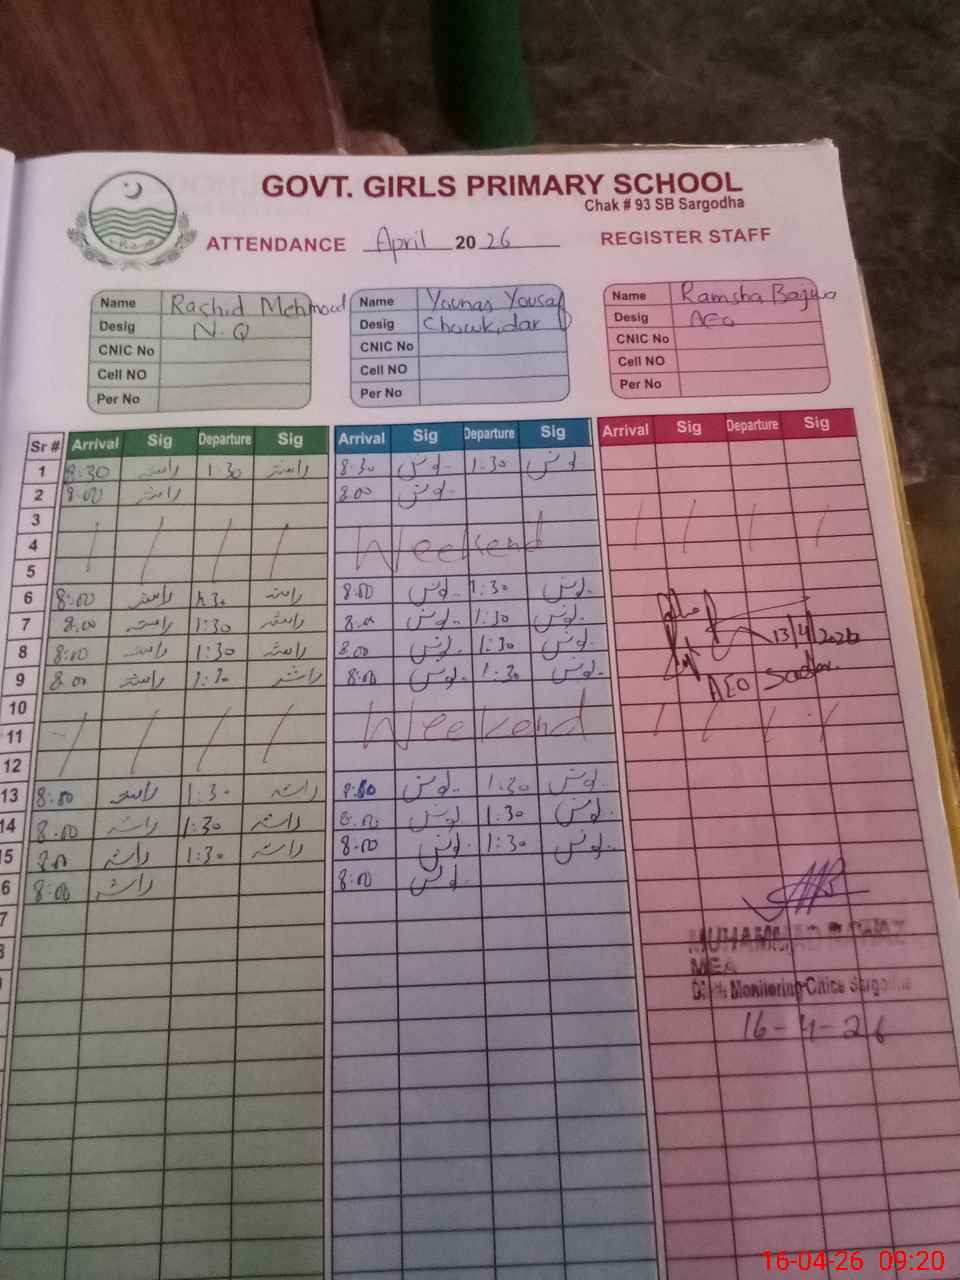 GOVT. GIRLS PRIMARY SCHOOL
Chak # 93 SB Sargodha
ATTENDANCE April 2026 REGISTER STAFF
Name Rashid Mehmood Name Younas Yousaf Name Ramsha Bajwa
Desig N.Q Desig Chowkidar Desig AEO
CNIC No CNIC No CNIC No
Cell NO Cell NO Cell NO
Per No Per No Per No
Sr # Arrival Sig Departure Sig Arrival Sig Departure Sig Arrival Sig Departure Sig
1 8:30 راشد 1:30 راشد 8:30 یونس 1:30 یونس
2 8:00 راشد 8:00 یونس
3
4 Weekend
5
6 8:00 راشد 1:30 راشد 8:00 یونس 1:30 یونس
7 8:00 راشد 1:30 راشد 8:00 یونس 1:30 یونس
8 8:00 راشد 1:30 راشد 8:00 یونس 1:30 یونس 13/4/2026
9 8:00 راشد 1:30 راشد 8:00 یونس 1:30 یونس AEO Sadar
10
11 Weekend
12
13 8:00 راشد 1:30 راشد 8:00 یونس 1:30 یونس
14 8:00 راشد 1:30 راشد 8:00 یونس 1:30 یونس
15 8:00 راشد 1:30 راشد 8:00 یونس 1:30 یونس
6 8:00 راشد 8:00 یونس
7
MUHAMMAD
MEA
Monitoring Office Sargodha
16-4-26
16-04-26 09:20